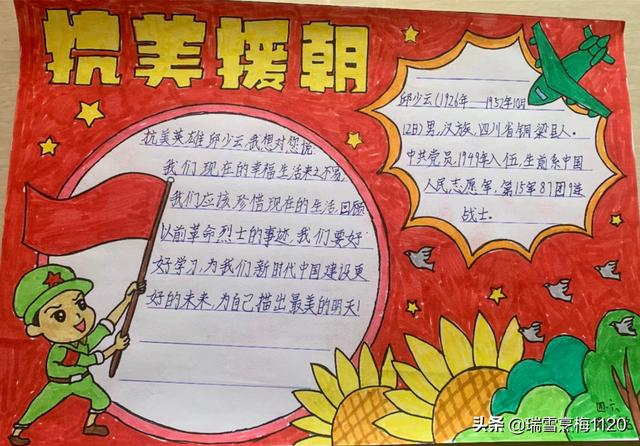 抗美援朝
抗美英雄邱少云,我想对您说:
我们现在的幸福生活来之不易,
我们应该珍惜现在的生活,回顾
以前革命烈士的事迹,我们要好
好学习,为我们新时代中国建设更
好的未来,为自己描出最美的明天!
邱少云(1926年——1952年10月
12日)男,汉族,四川省铜梁县人。
中共党员,1949年入伍,生前系中国
人民志愿军,第15军87团9连
战士。
四.六
头条@瑞雪烹梅1120